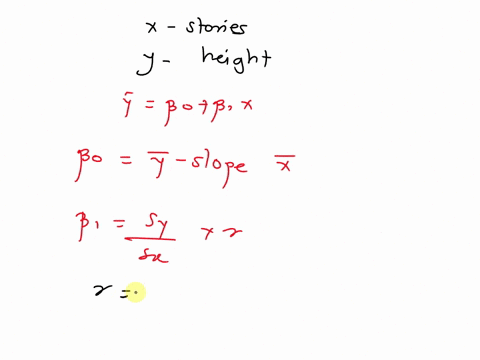 x - stories
y - height
ȳ = β0 + β1 x
β0 = ȳ - slope x̄
β1 = Sy / Sx × r
r =